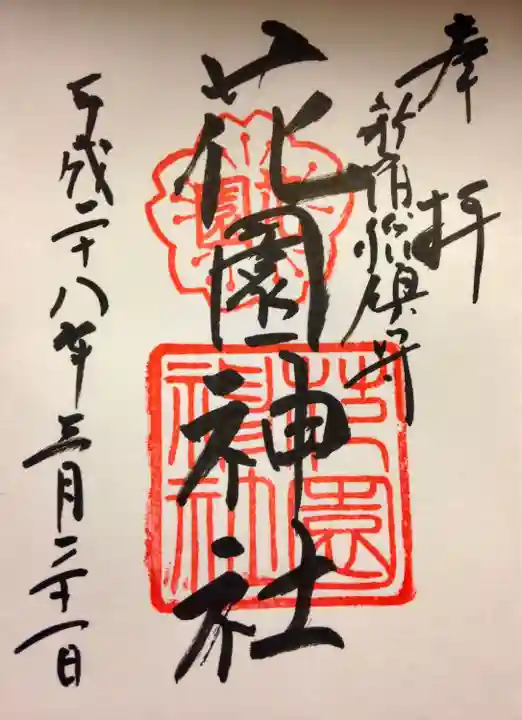 奉拝
新宿総鎮守
花園神社
花園神社
平成二十八年三月二十一日